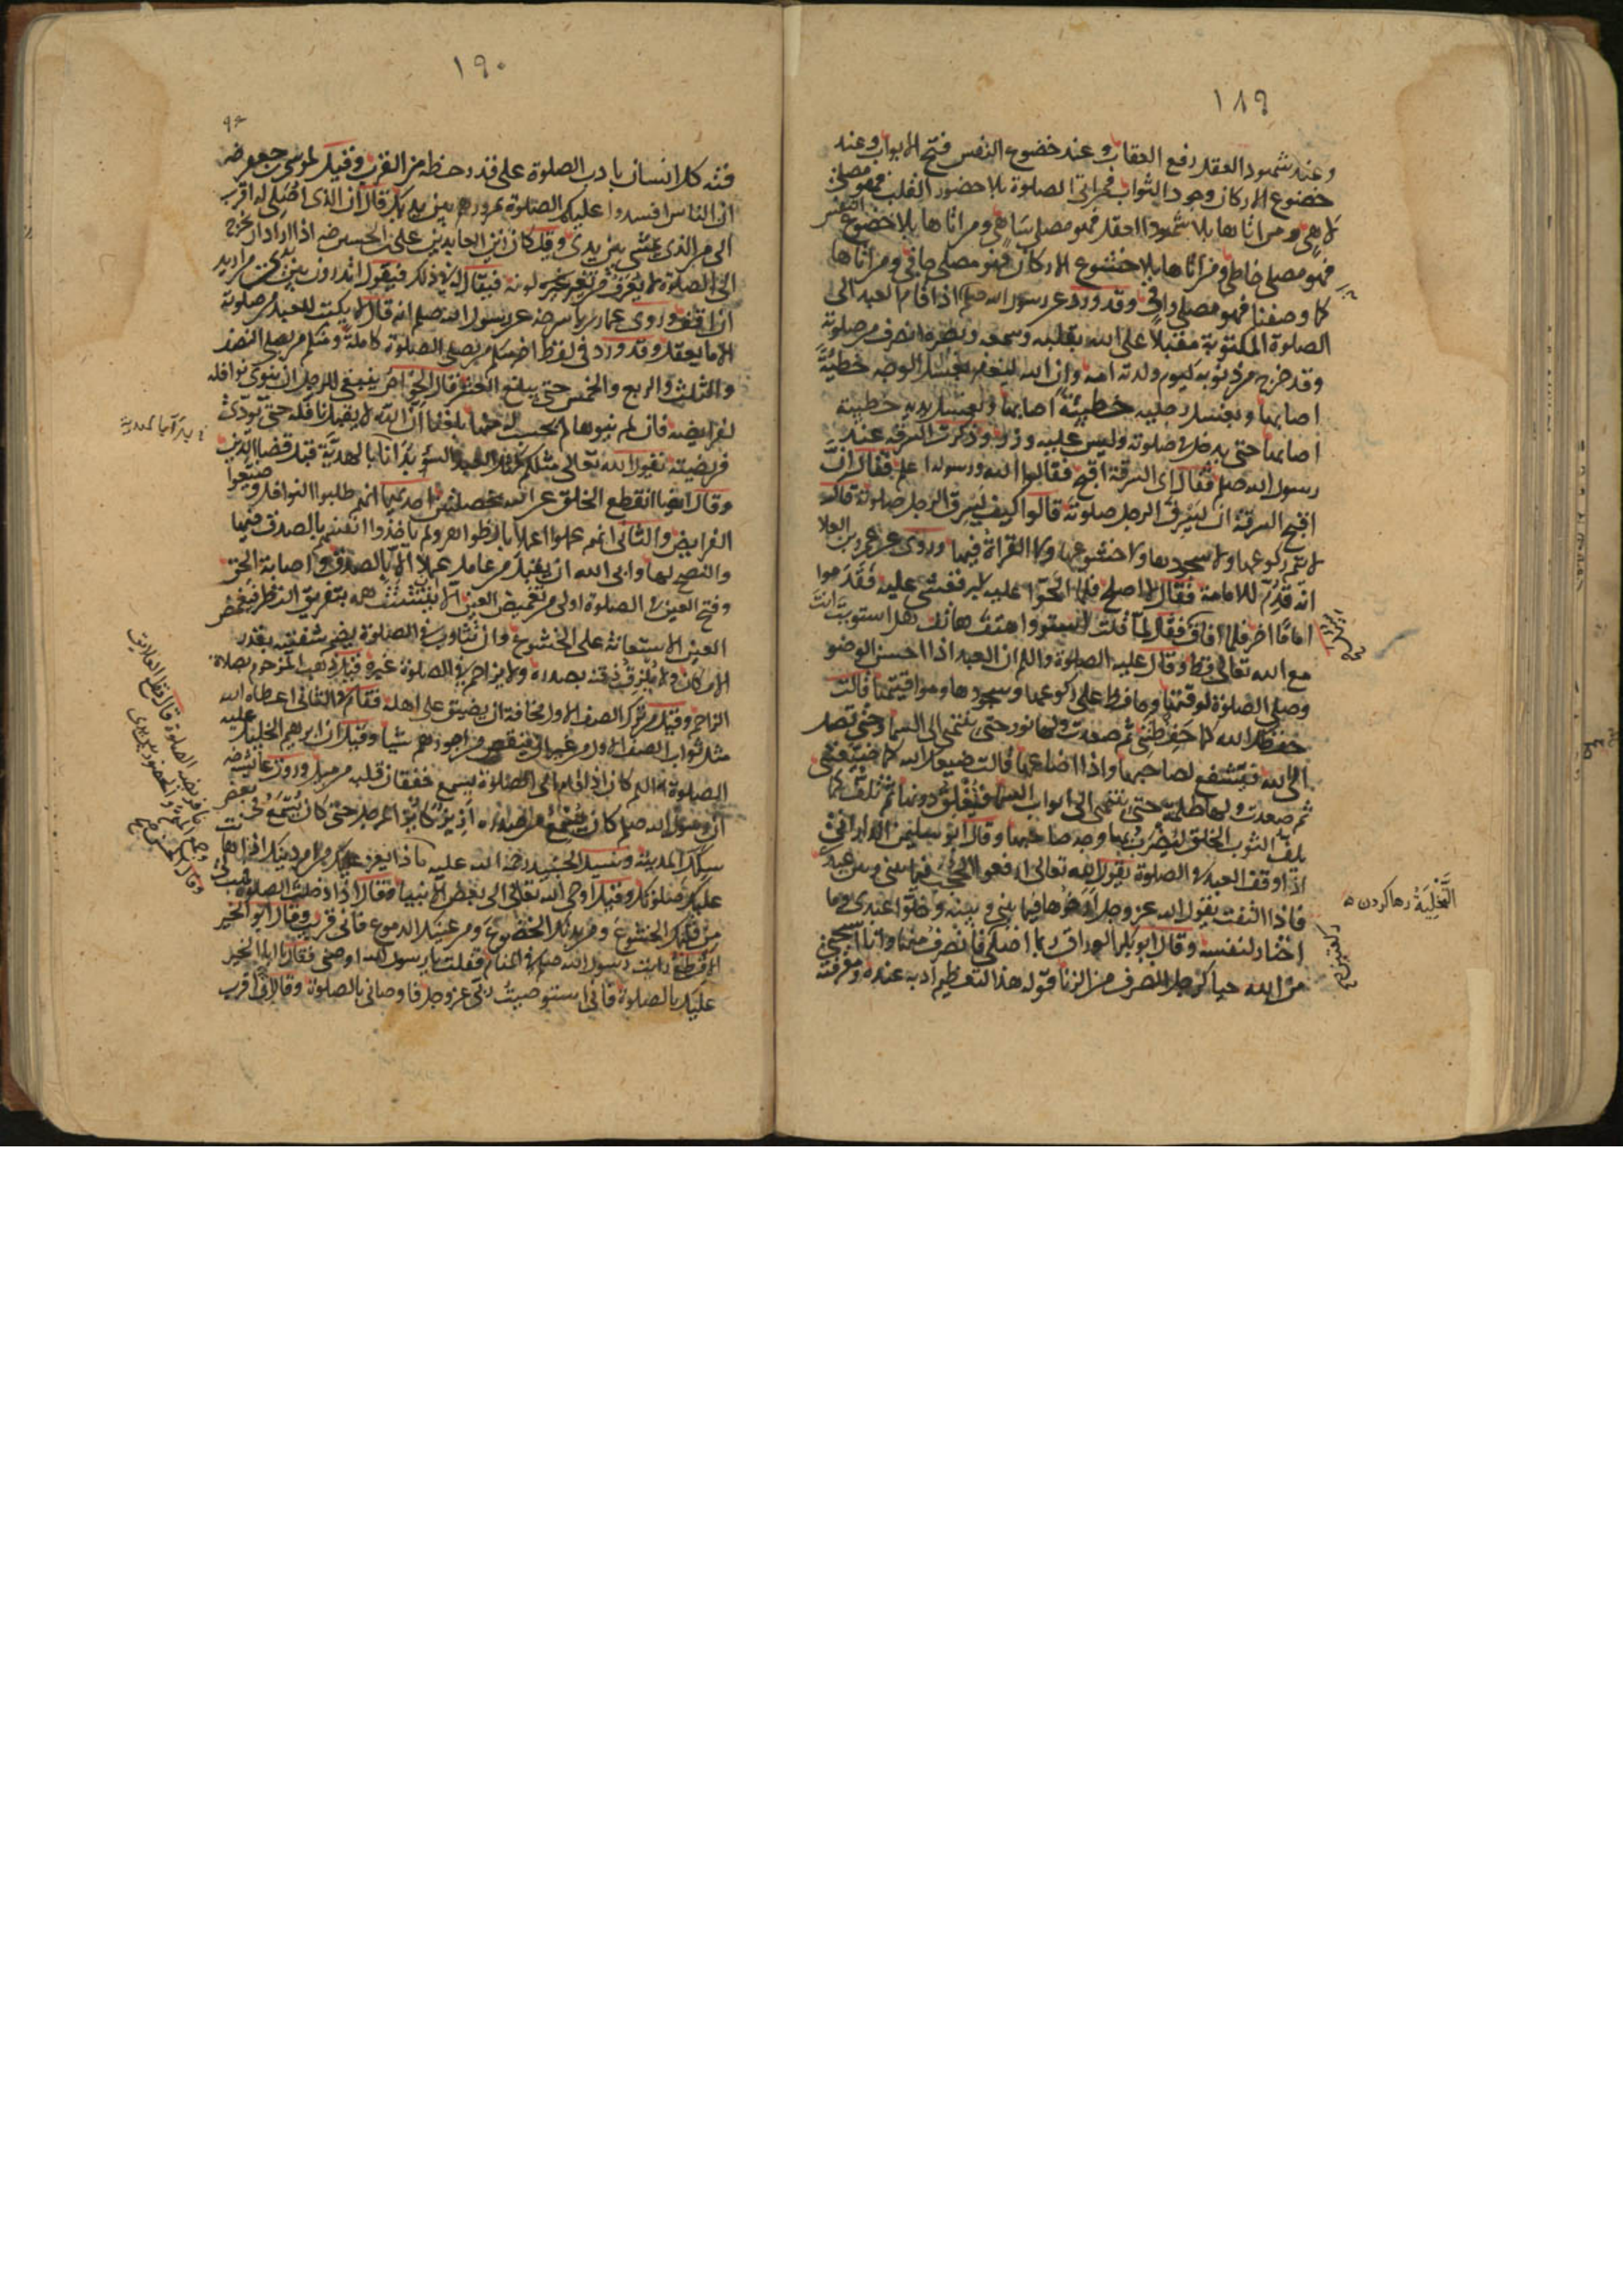 ١٨٩
وعند شهود العقل رفع العقاب وعند خضوع النفس فتح الابواب وعند
خضوع الاركان وجود الثواب فمن اتى الصلوة بلا حضور القلب فهو مصلى
لاهى ومن اتاها بلا شهود العقل فهو مصلى ساهى ومن اتاها بلا خضوع النفس
فهو مصلى خاطى ومن اتاها بلا خشوع الاركان فهو مصلى جافى ومن اتاها
كما وصفنا فهو مصلى وافى وقد ورد عن رسول الله صلعم اذا قام العبد الى
الصلوة المكتوبة مقبلا على الله بقلبه وسمعه وبصره انصرف من صلوته
وقد خرج من ذنوبه كيوم ولدته امه وان الله ليغفر بغسل الوجه خطيئة
اصابها وبغسل رجليه خطيئة اصابها وبغسل يديه خطيئة
اصابها حتى يدخل فى صلوته وليس عليه وزر وذكرت السرقة عند
رسول الله صلعم فقال اى السرقة اقبح فقالوا الله ورسوله اعلم فقال ان
اقبح السرقة ان يسرق الرجل صلوته قالوا كيف يسرق الرجل صلوته قال
لا يتم ركوعها ولا سجودها ولا خشوعها ولا القراة فيها وروى عن عمرو بن العلا
انه قدم للامامة فقال لا اصلح فلما الحوا عليه كبر فغشى عليه فقدموا
اماما اخر فلما افاق فقال لما قلت استووا هتف هاتف هل استويت انت
مع الله تعالى قط وقال عليه الصلوة والسلم ان العبد اذا احسن الوضو
وصلى الصلوة لوقتها وحافظ على ركوعها وسجودها ومواقيتها قالت
حفظك الله كما حفظتنى ثم صعدت ولها نور حتى ينتهى الى السما وحتى تصل
الى الله فيشفع لصاحبها واذا اضاعها قالت ضيعك الله كما ضيعتنى
ثم صعدت ولها ظلمة حتى ينتهى الى ابواب السما فيغلق دونها ثم تلف كما
يلف الثوب الخلق ليضرب بها وجه صاحبها وقال ابو سليمن الدارانى
اذا وقف العبد فى الصلوة يقول الله تعالى ارفعوا الحجب فيما بينى وبين عبدى
فاذا التفت يقول الله عز وجل ارخوها فيما بينى وبينه وخلوا عبدى وما
اختار لنفسه وقال ابو بكر الوراق ربما اصلى فانصرف منها وانا استحى
من الله حيا كرجل انصرف من الزنا قوله هذا التعظيم ادبه عنده ومعرفة
التخلية رها كردن
ركعتين
١٩٠
فته كل انسان بادب الصلوة على قدر حظه من القرب وقيل لموسى بن جعفر رضه
ان الناس افسدوا عليك الصلوة بمرورهم بين يديك قال ان الذى اصلى له اقرب
الى من الذى يمشى بين يدى وقيل كان زين العابدين على بن الحسين رضه اذا اراد ان يخرج
الى الصلوة لا يعرف من تغير لونه فيقال له فى ذلك فيقول اتدرون بين يدى من اريد
ان اقف وروى عمار بن ياسر رضه عن رسول الله صلعم انه قال لا يكتب للعبد من صلوته
الا ما يعقل وقد ورد فى لفظ اخر منكم من يصلى الصلوة كاملة ومنكم من يصلى النصف
والثلث والربع والخمس حتى يبلغ العشر قال الخواص ينبغى للرجل ان ينوى نوافله
لفرايضه فان لم ينوها لم يحسب له منها بلغنا ان الله لا يقبل نافلة حتى تودى
فريضته يقول الله تعالى مثلكم كمثل العبد السوء بدأنا بالهدية قبل قضا الدين
وقال ايضا انقطع الخلق عن الله بخصلتين احديهما انهم طلبوا النوافل وضيعوا
الفرايض والثانى انهم عملوا اعمالا بالظواهر ولم ياخذوا انفسهم بالصدق فيها
والنصح لها وابى الله ان يقبل من عامل عملا الا بالصدق واصابة الحق
وفتح العين فى الصلوة اولى من تغميض العين الا ان يتشتت همه بتفريق النظر فيغمض
العين للاستعانة على الخشوع وان تثاوب فى الصلوة يضم شفتيه بقدر
الامكان ولا يلزق ذقنه بصدره ولا يزاحم فى الصلوة غيره قيل ذهب المزحوم بصلاة
الزاحم وقيل من ترك الصف الاول مخافة ان يضيق على اهله فقام فى الثانى اعطاه الله
مثل ثواب الصف الاول من غير ان ينقص من اجورهم شيا وقيل ان ابرهيم الخليل عليه
الصلوة والسلم كان اذا قام الى الصلوة يسمع خفقان قلبه من ميل وروت عايشة رضه
ان رسول الله صلعم كان يسمع من صدره ازيز كازيز المرجل حتى كان يسمع فى بعض
سكك المدينة وسئل الجنيد رحمة الله عليه
عليك صلوتك وقيل اوحى الله تعالى الى بعض الانبياء فقال اذا دخلت الصلوة فهب لى
من قلبك الخشوع ومن بدنك الخضوع ومن عينك الدموع فانى قريب وقال ابو الخير
الاقطع رايت رسول الله صلعم فى المنام فقلت يا رسول الله اوصنى فقال يا ابا الخير
عليك بالصلوة فانى استوصيت ربى عز وجل فاوصانى بالصلوة وقال لى اقرب